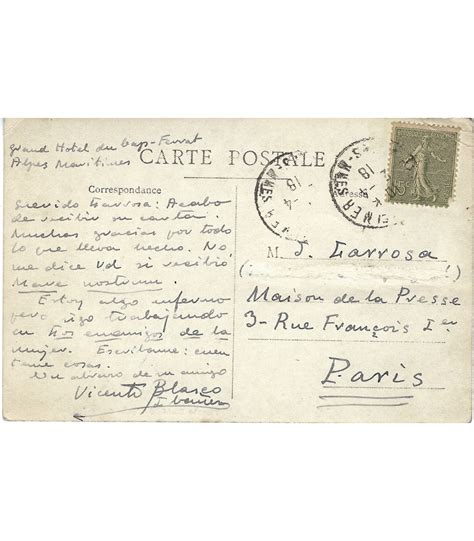 Grand Hotel du Cap-Ferrat
Alpes Maritimes
CARTE POSTALE
Correspondance
Querido Garrosa: Acabo
de recibir su carta.
Muchas gracias por todo
lo que lleva hecho. No
me dice Vd si recibió
Mare nostrum.
Estoy algo enfermo
pero sigo trabajando
en Los enemigos de la
mujer. Escríbame: cuen
teme cosas.
Un abrazo de su amigo
Vicente Blasco
Ibañez
M. J. Garrosa
Maison de la Presse
3-Rue François Ier
Paris